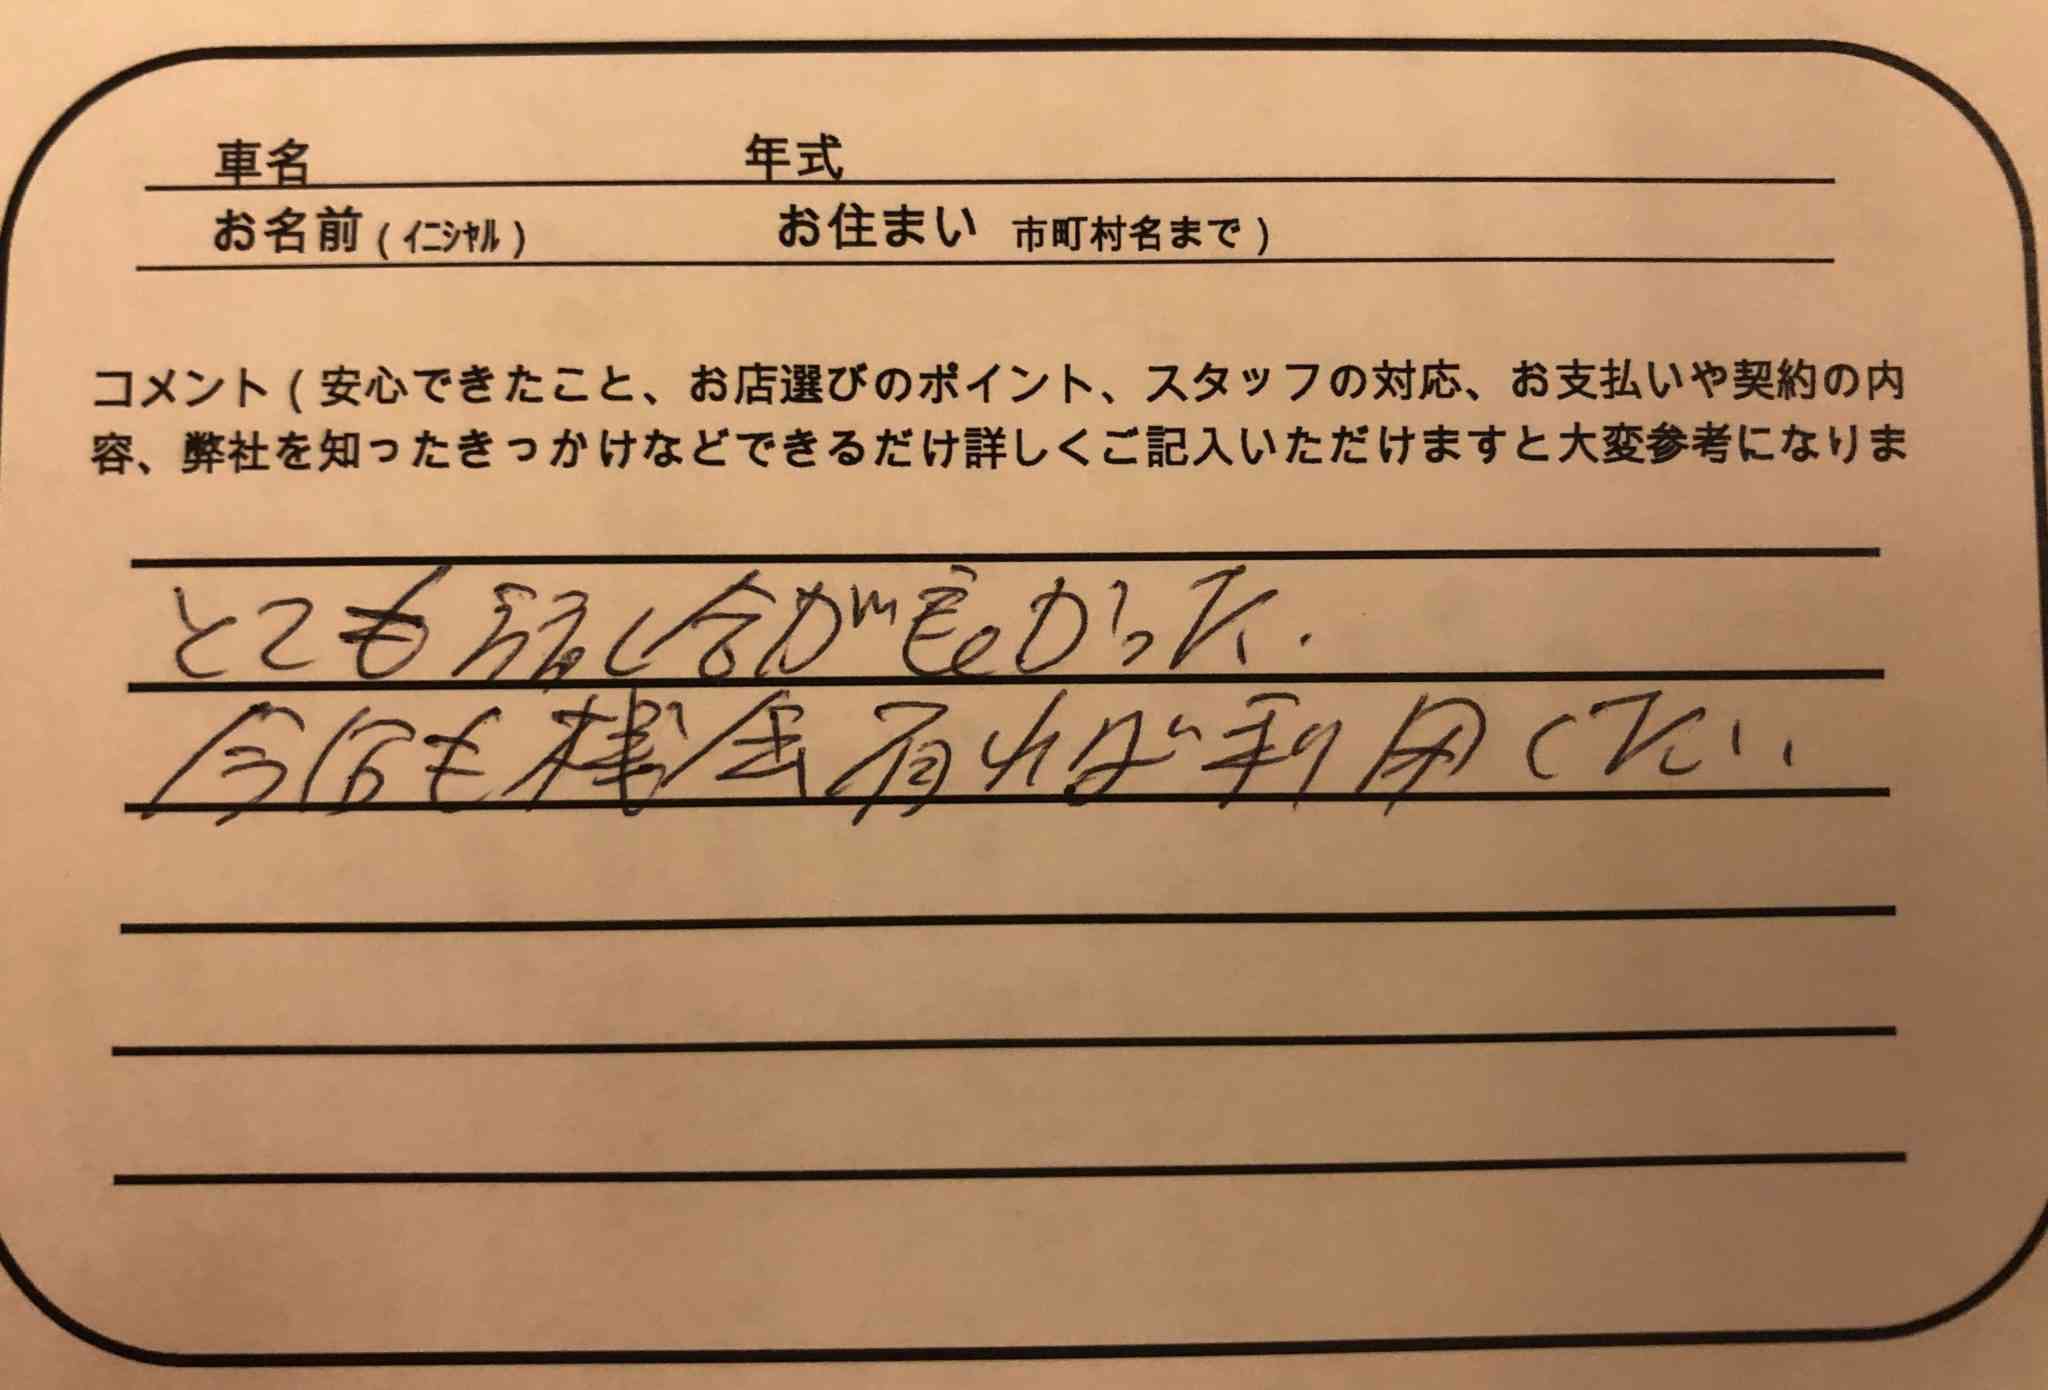 車名 年式
お名前(イニシャル) お住まい 市町村名まで)
コメント(安心できたこと、お店選びのポイント、スタッフの対応、お支払いや契約の内
容、弊社を知ったきっかけなどできるだけ詳しくご記入いただけますと大変参考になりま
とても話し合がもてよかった.
今后も機会有れば利用したい.